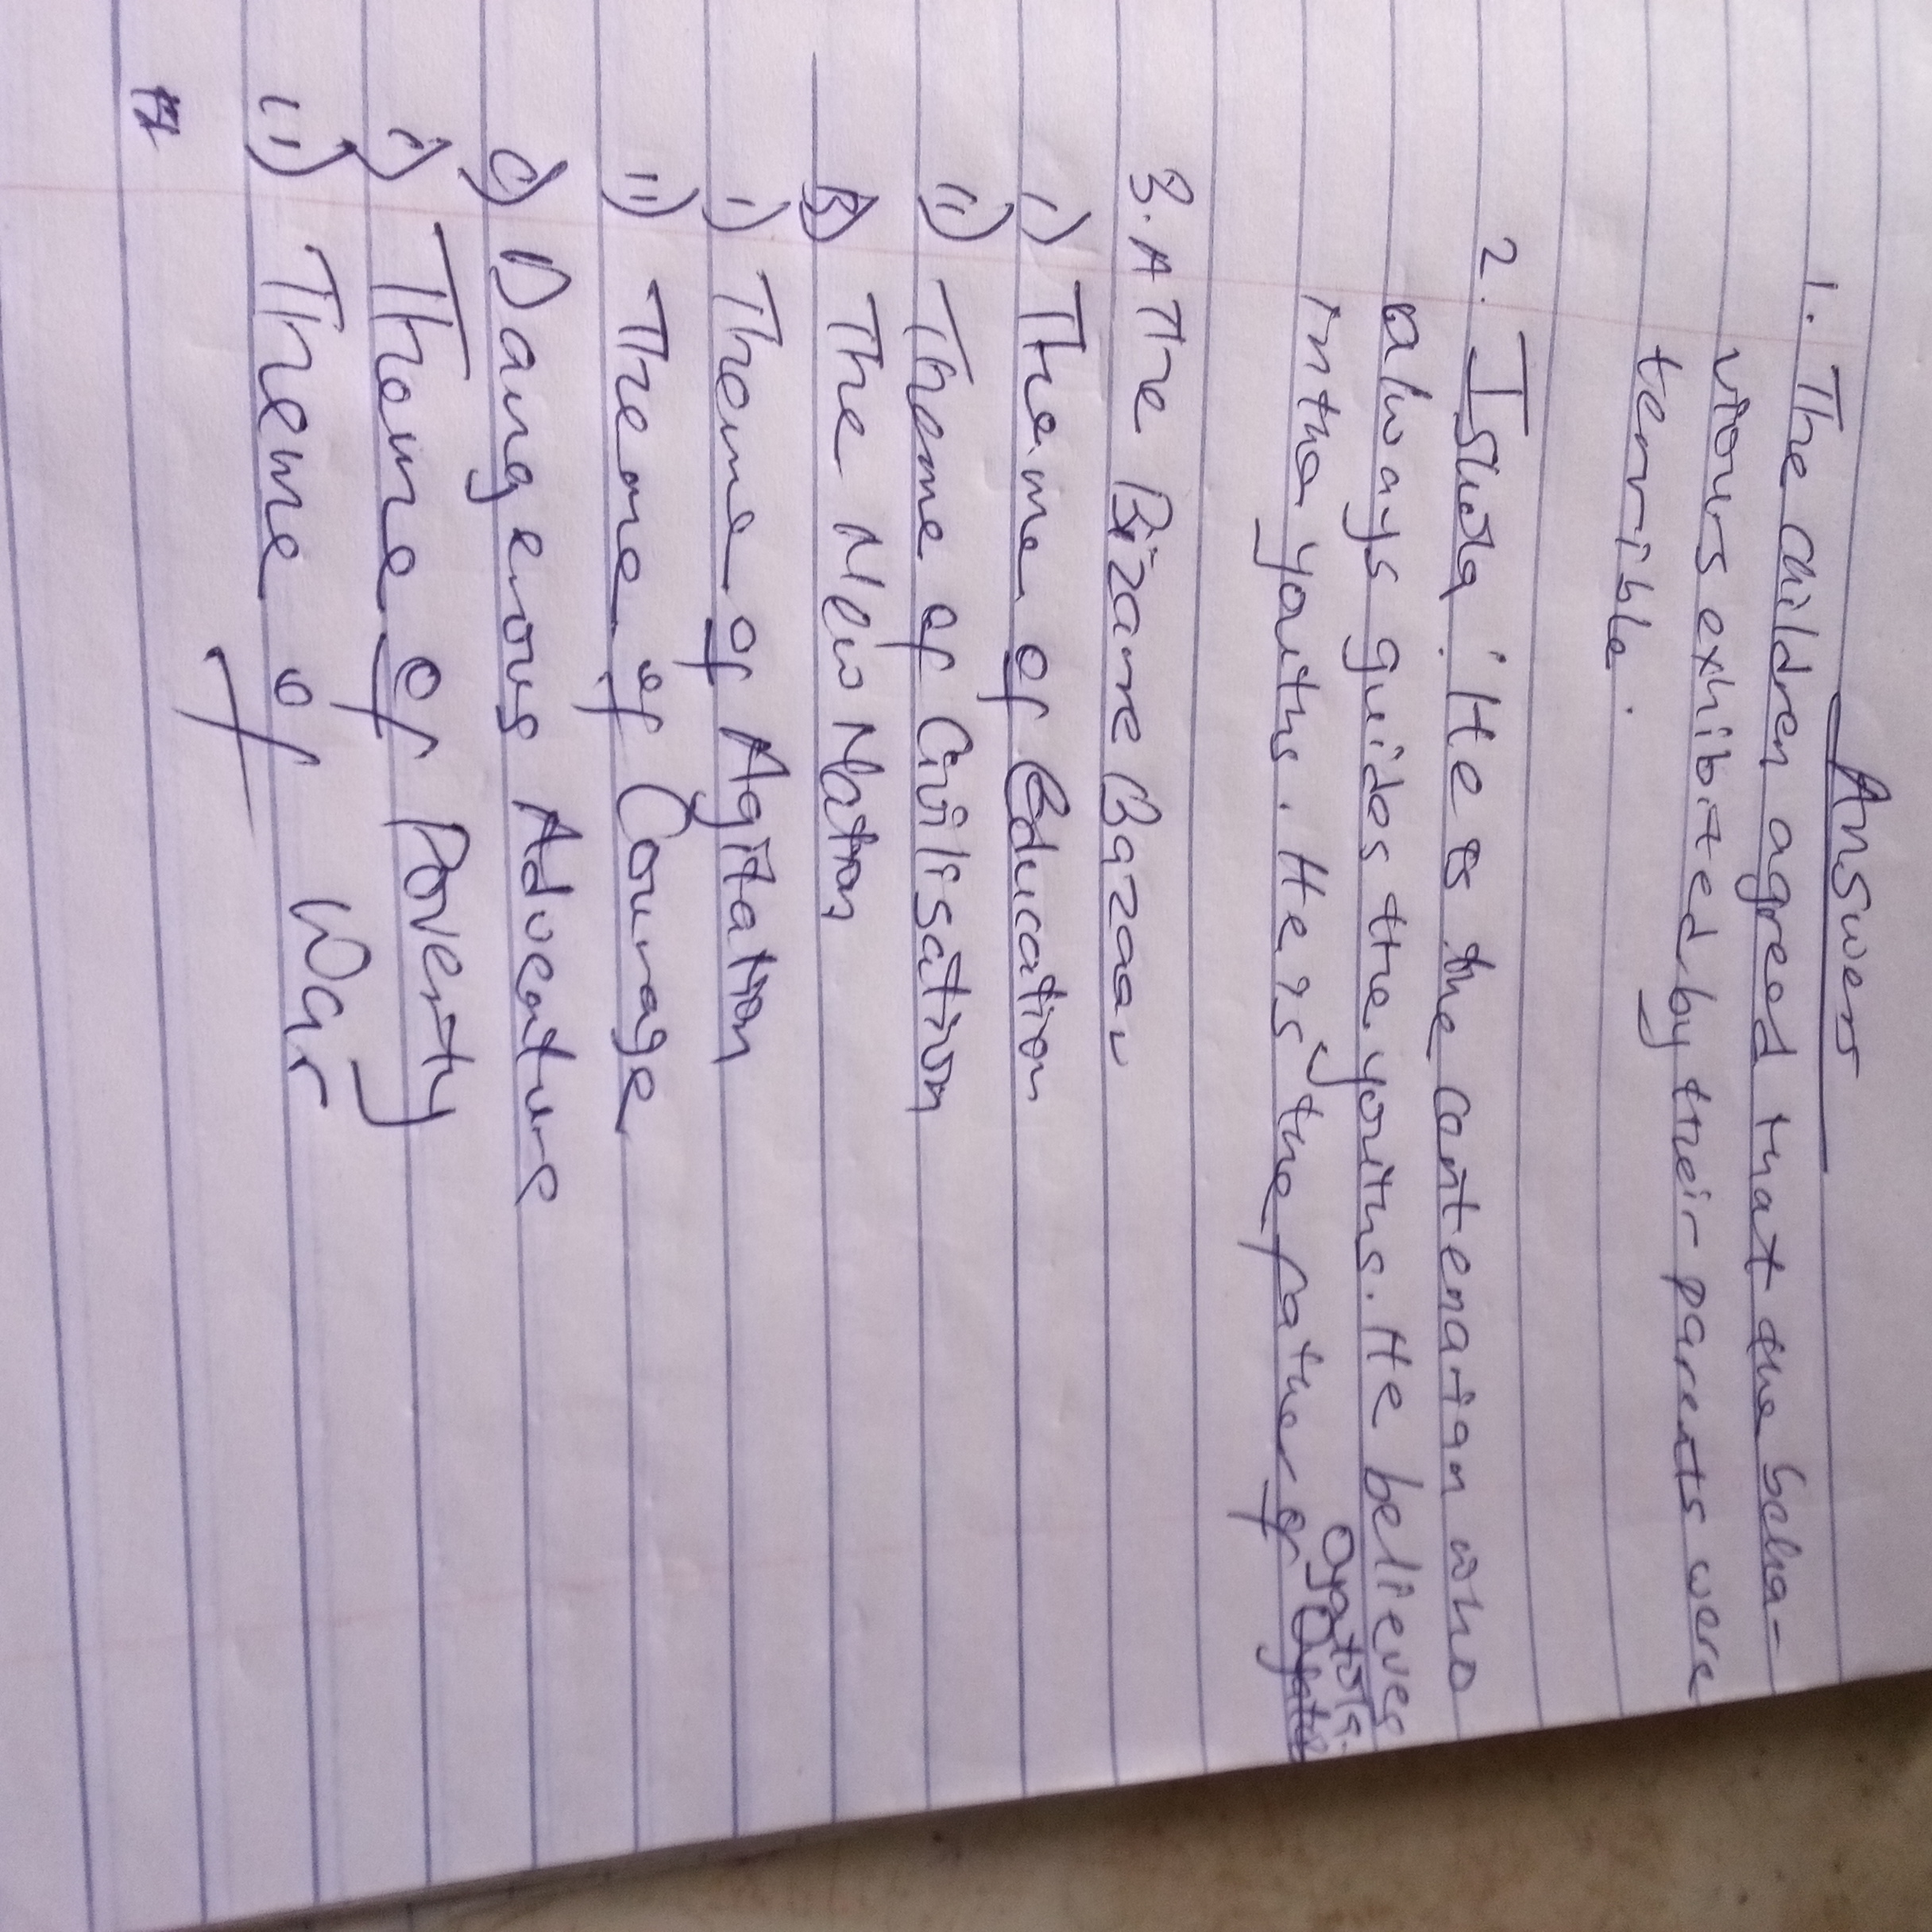 Answer
1. The children agreed that the beha-
viours exhibited by their parents were
terrible.
2. Ishola: He is the centenarian who
always guides the youths. He believes
in the youths. He is the father of Ogatols.
3. A The Bizarre Bazaar
i) Theme of Education
ii) Theme of Civilisation
B) The New Nation
i) Theme of Agitation
ii) Theme of Courage
c) Dangerous Adventure
i) Theme of Poverty
ii) Theme of War